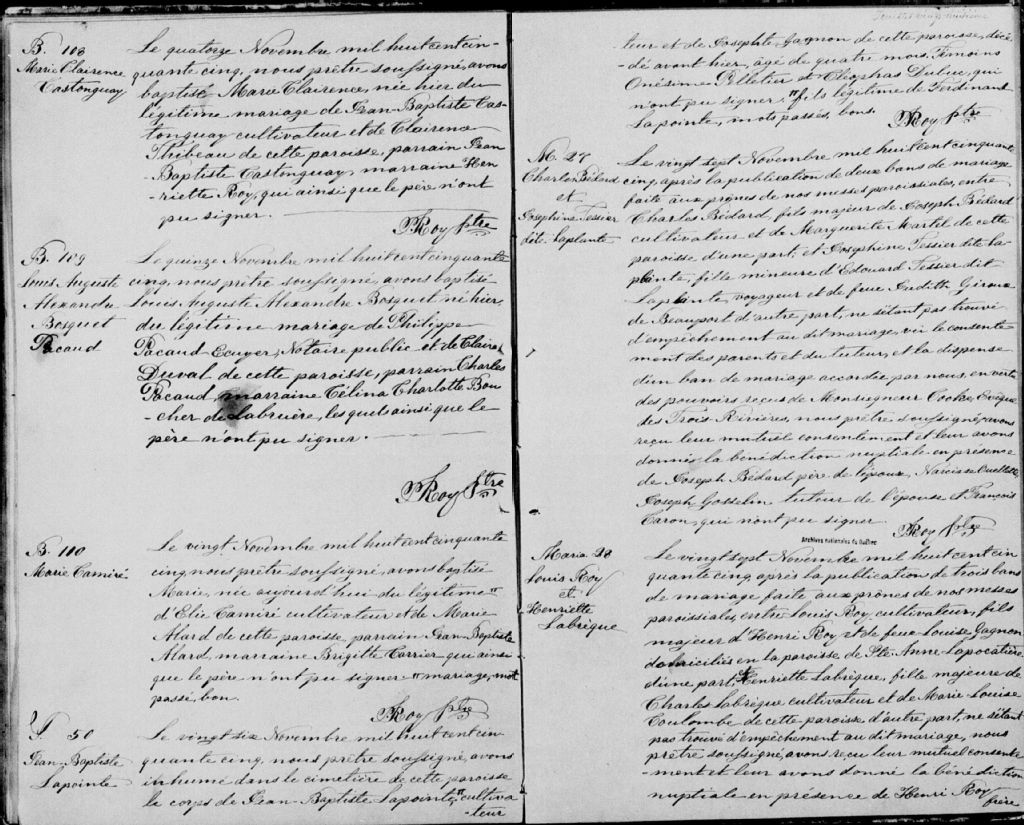 B. 108
Marie Clairence
Castonguay
Le quatorze Novembre mil huit cent cin-
quante cinq, nous prêtre soussigné, avons
baptisé Marie Clairence, née hier du
légitime mariage de Jean-Baptiste Cas-
tonguay cultivateur et de Clairence
Thibeau de cette paroisse, parrain Jean
Baptiste Castonguay, marraine Hen-
-riette Roy, qui ainsi que le père n'ont
pu signer.
Roy ptre
B. 109
Louis Auguste
Alexandre
Bosquet
Pacaud
Le quinze Novembre mil huit cent cinquante
cinq, nous prêtre soussigné, avons baptisé
Louis Auguste Alexandre Bosquet né hier,
du légitime mariage de Philippe
Pacaud Ecuyer, Notaire public et de Claire
Duval de cette paroisse, parrain Charles
Pacaud, marraine Célina Charlotte Bou
-cher de Labruère, lesquels ainsi que le
père n'ont pu signer.
Roy ptre
B. 110
Marie Camiré
Le vingt Novembre mil huit cent cinquante
cinq, nous prêtre soussigné, avons baptisé
Marie, née aujourd'hui du légitime "
d'Elie Camiré cultivateur et de Marie
Alard de cette paroisse, parrain Jean-Baptiste
Alard, marraine Brigitte Carrier qui ainsi
que le père n'ont pu signer " mariage, mot
passé, bon.
Roy ptre
S 50
Jean-Baptiste
Lapointe
Le vingt six Novembre mil huit cent cin
quante cinq, nous prêtre soussigné, avons
inhumé dans le cimetière de cette paroisse
le corps de Jean-Baptiste Lapointe, " cultiva
-teur
teur et de Josephte Gagnon de cette paroisse, décé
-dé avant hier, âgé de quatre mois, Témoins
Onésime Pelletier et Cléophas Dubuc, qui
n'ont pu signer. " fils légitime de Ferdinant
Lapointe, mots passés, bons.
Roy ptre
M. 27
Charles Bédard
et
Josephine Tessier
dite Laplante
Le vingt sept Novembre mil huit cent cinquante
cinq, après la publication de deux bans de mariage
faite aux prônes de nos messes paroissiales, entre
Charles Bédard, fils majeur de Joseph Bédard
cultivateur et de Marguerite Martel de cette
paroisse d'une part; et Josephine Tessier dite La-
plante, fille mineure d'Edouard Tessier dit
Laplante, voyageur et de feue Judith Giroux
de Beauport d'autre part, ne s'étant pas trouvé
d'empêchement au dit mariage, vu le consente
ment des parents et du tuteur, et la dispense
d'un ban de mariage accordée par nous, en vertu
des pouvoirs reçus de Monseigneur Cooke, Evêque
des Trois Rivières, nous prêtre soussigné, avons
reçu leur mutuel consentement et leur avons
donné la bénédiction nuptiale en présence
de Joseph Bédard père de l'époux, Narcisse Ouellette
Joseph Gosselin tuteur de l'épouse et François
Caron, qui n'ont pu signer.
Roy ptre
Archives nationales du Québec
Maria. 28
Louis Roy
et
Henriette
Labrèque
Le vingt sept Novembre mil huit cent cin
quante cinq après la publication de trois bans
de mariage faite aux prônes de nos messes
paroissiales, entre Louis Roy, cultivateur, fils
majeur d'Henri Roy et de feue Louise Gagnon
domiciliés en la paroisse de Ste Anne Lapocatière
d'une part, et Henriette Labrèque, fille majeure de
Charles Labrèque cultivateur et de Marie-Louise
Coulombe de cette paroisse d'autre part, ne s'étant
pas trouvé d'empêchement au dit mariage, nous
prêtre soussigné, avons reçu leur mutuel consente
-ment et leur avons donné la bénédiction
nuptiale en présence de Henri Roy
frère